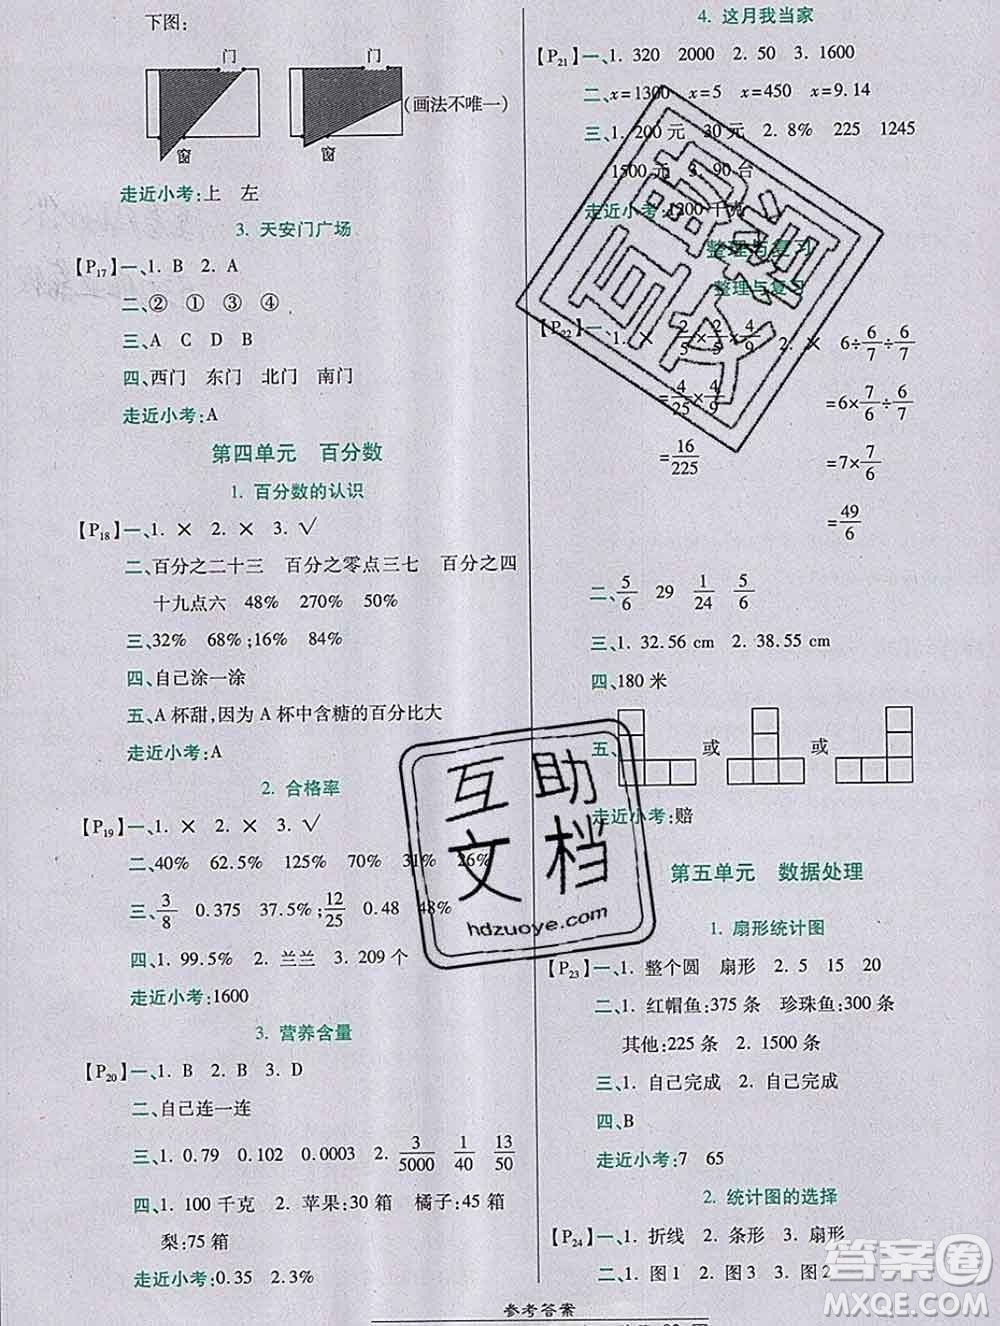 下图:
门
门
窗
窗
(画法不唯一)
走近小考:上 左
3. 天安门广场
【P17】一、1. B 2. A
二、② ① ③ ④
三、A C D B
四、西门 东门 北门 南门
走近小考:A
第四单元 百分数
1. 百分数的认识
【P18】一、1. × 2. × 3. √
二、百分之二十三 百分之零点三七 百分之四
十九点六 48% 270% 50%
三、32% 68%;16% 84%
四、自己涂一涂
五、A 杯甜,因为 A 杯中含糖的百分比大
走近小考:A
2. 合格率
【P19】一、1. × 2. × 3. √
二、40% 62.5% 125% 70% 31% 26%
三、3/8 0.375 37.5%;12/25 0.48 48%
四、1. 99.5% 2. 兰兰 3. 209 个
走近小考:1600
3. 营养含量
【P20】一、1. B 2. B 3. D
二、自己连一连
三、1. 0.79 0.102 0.0003 2. 3/5000 1/40 13/50
四、1. 100 千克 2. 苹果:30 箱 橘子:45 箱
梨:75 箱
走近小考:0.35 2.3%
4. 这月我当家
【P21】一、1. 320 2000 2. 50 3. 850
二、x=1300 x=5 x=450 x=9.14
三、1. 200 元 30 元 2. 8% 225 1245
1500 元 3. 90 台
走近小考:1200 千克
整理与复习
整理与复习
【P22】一、1. × 2/5×2/5×4/9 2. × 6÷6/7÷6/7
=4/25×4/9 =6×7/6÷6/7
=16/225 =7×7/6
=49/6
二、5/6 29 1/24 5/6
三、1. 32.56 cm 2. 38.55 cm
四、180 米
五、 或 或
走近小考:赔
第五单元 数据处理
1. 扇形统计图
【P23】一、1. 整个圆 扇形 2. 5 15 20
二、1. 红帽鱼:375 条 珍珠鱼:300 条
其他:225 条 2. 1500 条
三、1. 自己完成 2. 自己完成
四、B
走近小考:7 65
2. 统计图的选择
【P24】一、1. 折线 2. 条形 3. 扇形
二、1. 图 1 2. 图 3 3. 图 2
参考答案
互助文档
hdzuoye.com
答案圈
MXQE.COM